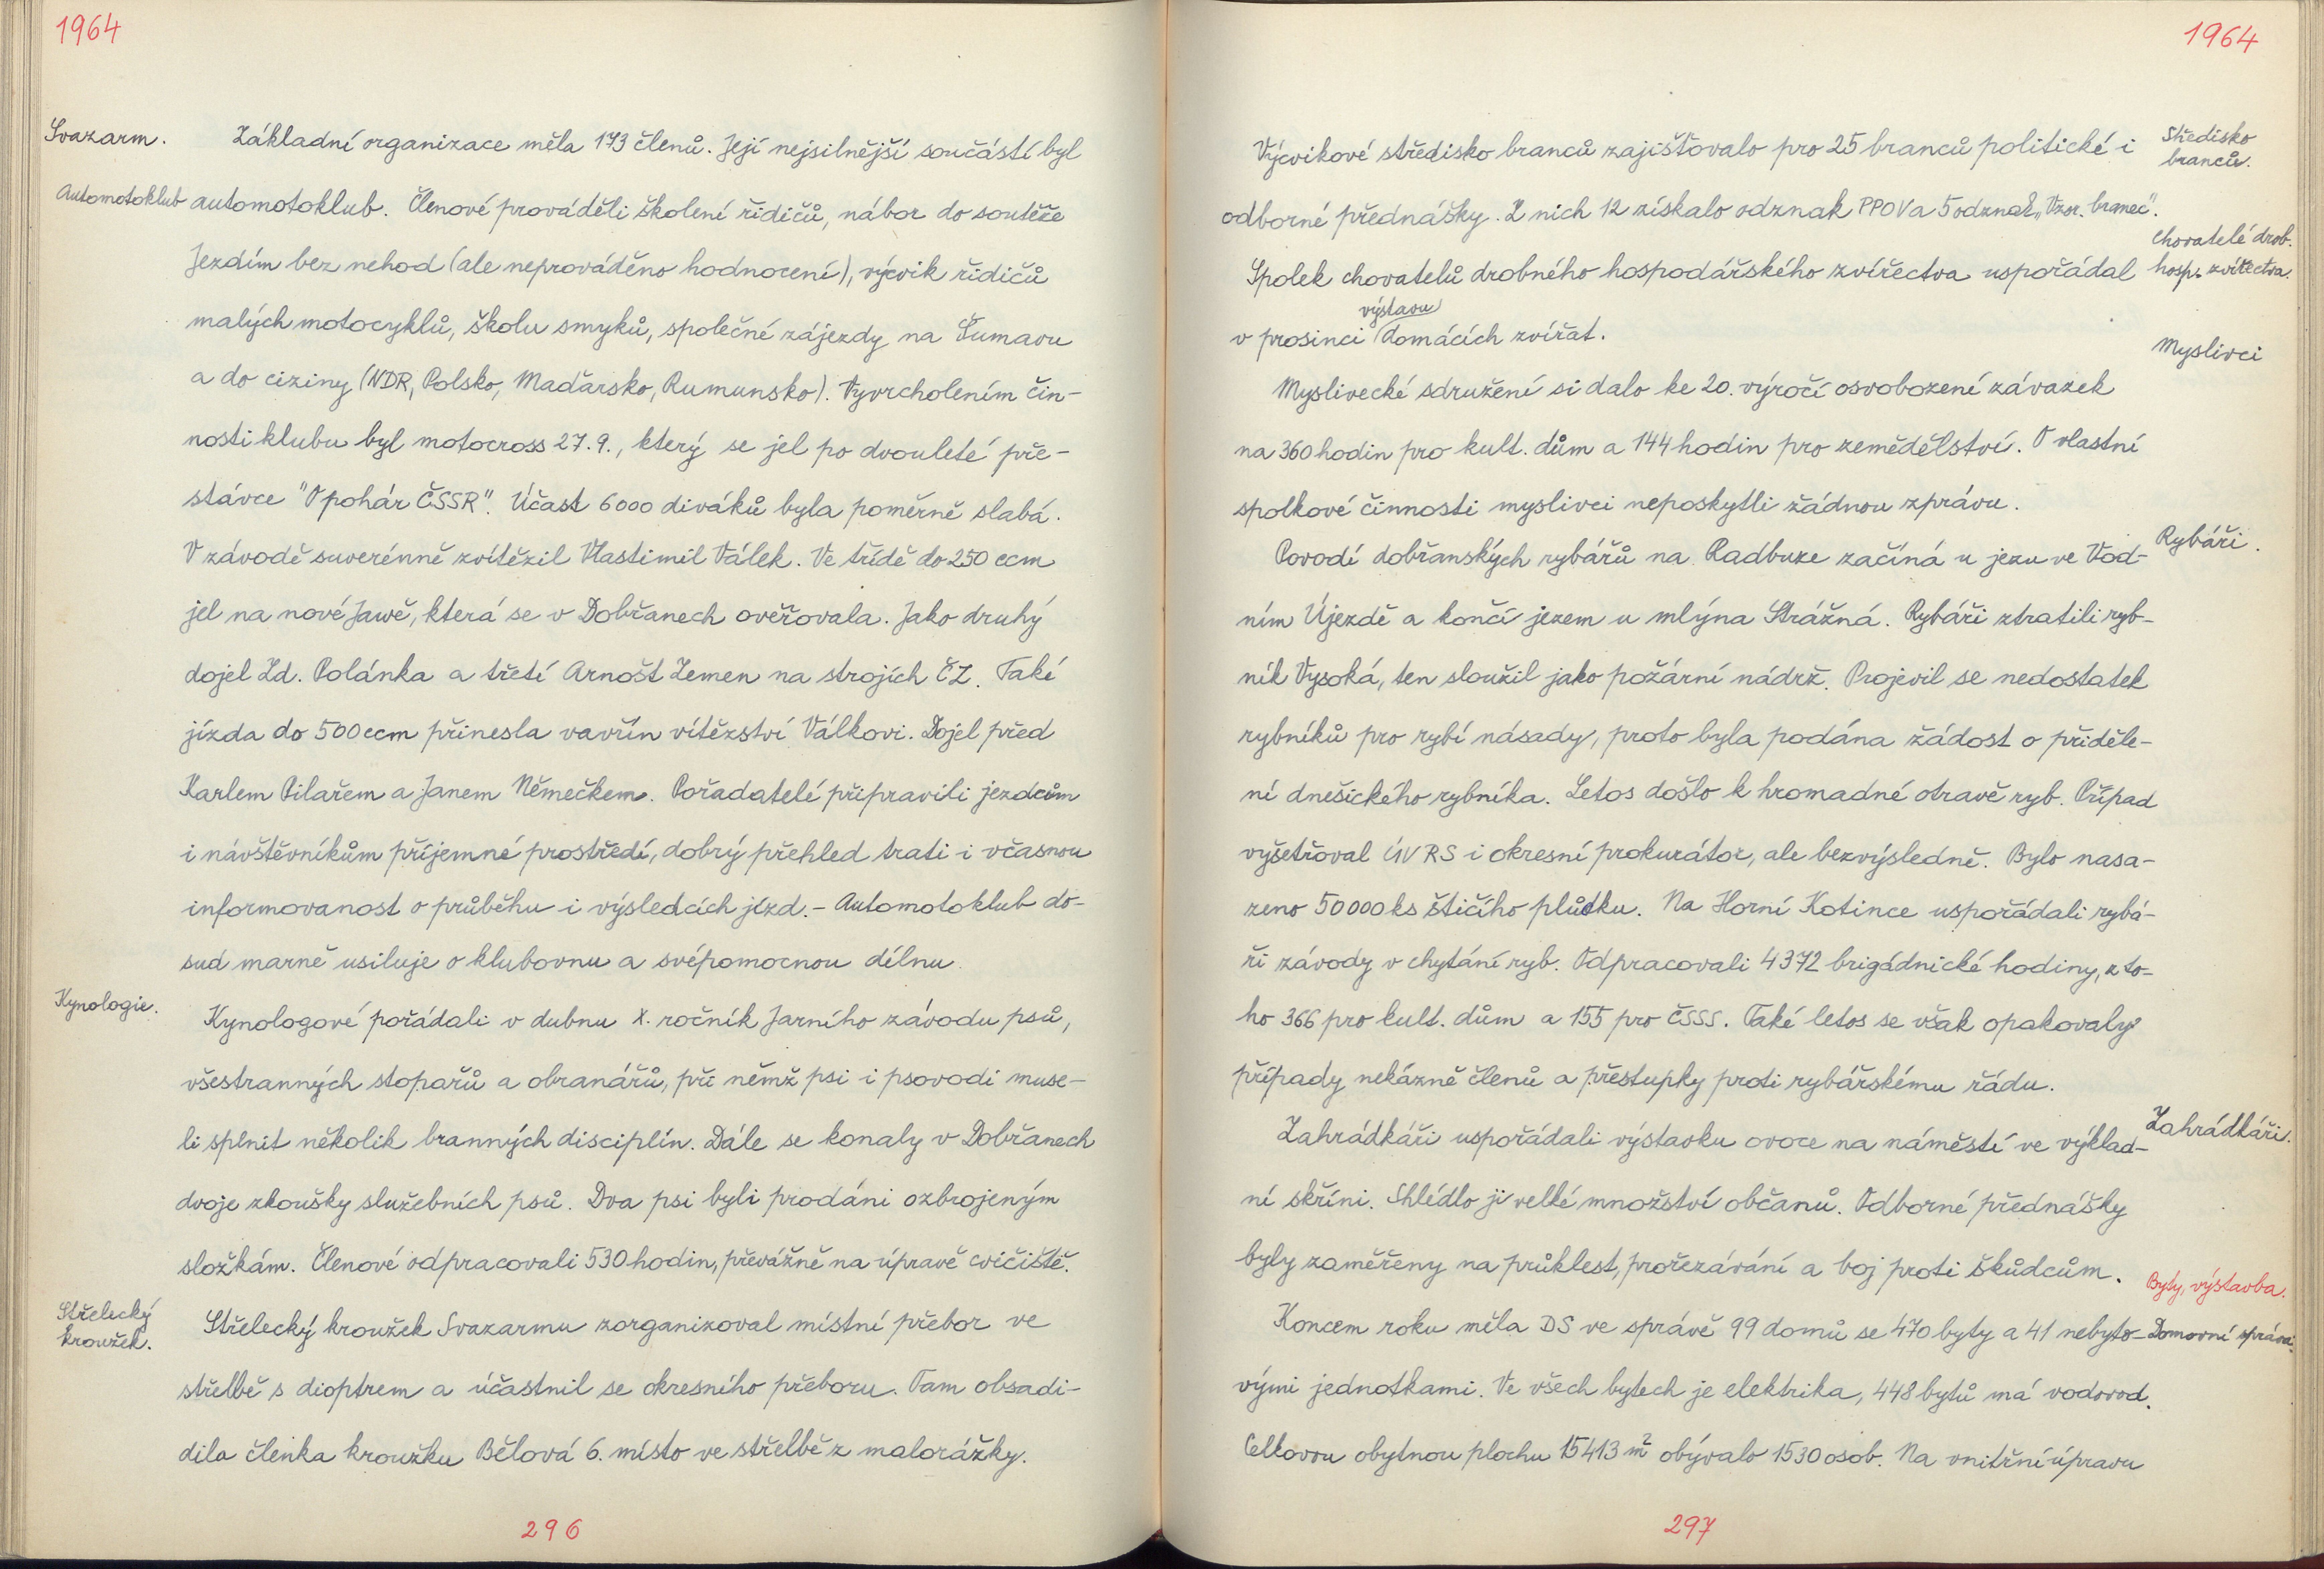 1964
Svazarm.
Základní organizace měla 173 členů. Její nejsilnější součástí byl
Automotoklub
automotoklub. Členové prováděli školení řidičů, nábor do soutěže
Jezdím bez nehod (ale neprováděno hodnocení), výcvik řidičů
malých motocyklů, školu smyků, společné zájezdy na Šumavu
a do ciziny (NDR, Polsko, Maďarsko, Rumunsko). Vyvrcholením čin-
nosti klubu byl motocross 27.9., který se jel po dvouleté pře-
stávce "O pohár ČSSR". Účast 6000 diváků byla poměrně slabá.
V závodě suverénně zvítězil Vlastimil Válek. Ve třídě do 250 ccm
jel na nové Jawě, která se v Dobřanech ověřovala. Jako druhý
dojel Zd. Polánka a třetí Arnošt Zemen na strojích ČZ. Také
jízda do 500 ccm přinesla vavřín vítězství Válkovi. Dojel před
Karlem Pilařem a Janem Němečkem. Pořadatelé připravili jezdcům
i návštěvníkům příjemné prostředí, dobrý přehled trati i včasnou
informovanost o průběhu i výsledcích jízd. - Automotoklub do-
sud marně usiluje o klubovnu a svépomocnou dílnu.
Kynologie.
Kynologové pořádali v dubnu X. ročník Jarního závodu psů,
všestranných stopařů a obranářů, při němž psi i psovodi muse-
li splnit několik branných disciplín. Dále se konaly v Dobřanech
dvoje zkoušky služebních psů. Dva psi byli prodáni ozbrojeným
složkám. Členové odpracovali 530 hodin, převážně na úpravě cvičiště.
Střelecký
kroužek.
Střelecký kroužek Svazarmu zorganizoval místní přebor ve
střelbě s dioptrem a účastnil se okresního přeboru. Tam obsadi-
dila členka kroužku Bělová 6. místo ve střelbě z malorážky.
296
1964
Výcvikové středisko branců zajišťovalo pro 25 branců politické i
Středisko
branců.
odborné přednášky. Z nich 12 získalo odznak PPOV a 5 odznak „Vzor. branec".
Chovatelé drob.
hosp. zvířectva.
Spolek chovatelů drobného hospodářského zvířectva uspořádal
výstavu
v prosinci domácích zvířat.
Myslivci
Myslivecké sdružení si dalo ke 20. výročí osvobození závazek
na 360 hodin pro kult. dům a 144 hodin pro zemědělství. O vlastní
spolkové činnosti myslivci neposkytli žádnou zprávu.
Rybáři.
Povodí dobřanských rybářů na Radbuze začíná u jezu ve Vod-
ním Újezdě a končí jezem u mlýna Strážná. Rybáři ztratili ryb-
ník Vysoká, ten sloužil jako požární nádrž. Projevil se nedostatek
rybníků pro rybí násady, proto byla podána žádost o příděle-
ní dnešického rybníka. Letos došlo k hromadné otravě ryb. Případ
vyšetřoval ÚV RS i okresní prokurátor, ale bezvýsledně. Bylo nasa-
zeno 50000 ks štičího plůdku. Na Horní Kotince uspořádali rybá-
ři závody v chytání ryb. Odpracovali 4372 brigádnické hodiny, z to-
ho 366 pro kult. dům a 155 pro ČSSS. Také letos se však opakovaly
případy nekázně členů a přestupky proti rybářskému řádu.
Zahrádkáři.
Zahrádkáři uspořádali výstavku ovoce na náměstí ve výklad-
ní skříni. Shlédlo ji velké množství občanů. Odborné přednášky
byly zaměřeny na průklest, prořezávání a boj proti škůdcům.
Byty, výstavba.
Koncem roku měla DS ve správě 99 domů se 470 byty a 41 nebyto-
Domovní správa.
vými jednotkami. Ve všech bytech je elektrika, 448 bytů má vodovod.
Celkovou obytnou plochu 15413 m² obývalo 1530 osob. Na vnitřní úpravu
297